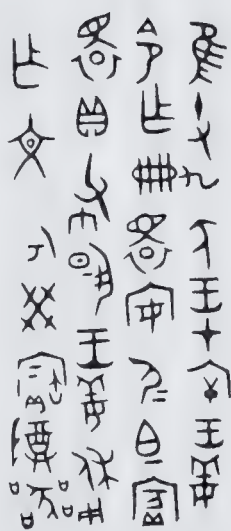 隹十又九年王才厈王姜
令乍冊睘安尸=白=賓
睘貝布揚王姜休用
乍文考癸寶尊器